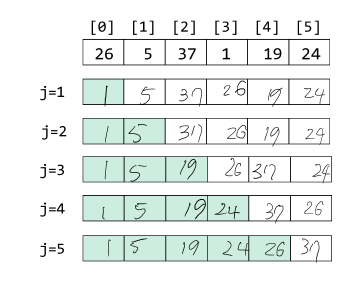 [0] [1] [2] [3] [4] [5]
26 5 37 1 19 24
j=1 1 5 37 26 19 24
j=2 1 5 37 26 19 24
j=3 1 5 19 26 37 24
j=4 1 5 19 24 37 26
j=5 1 5 19 24 26 37